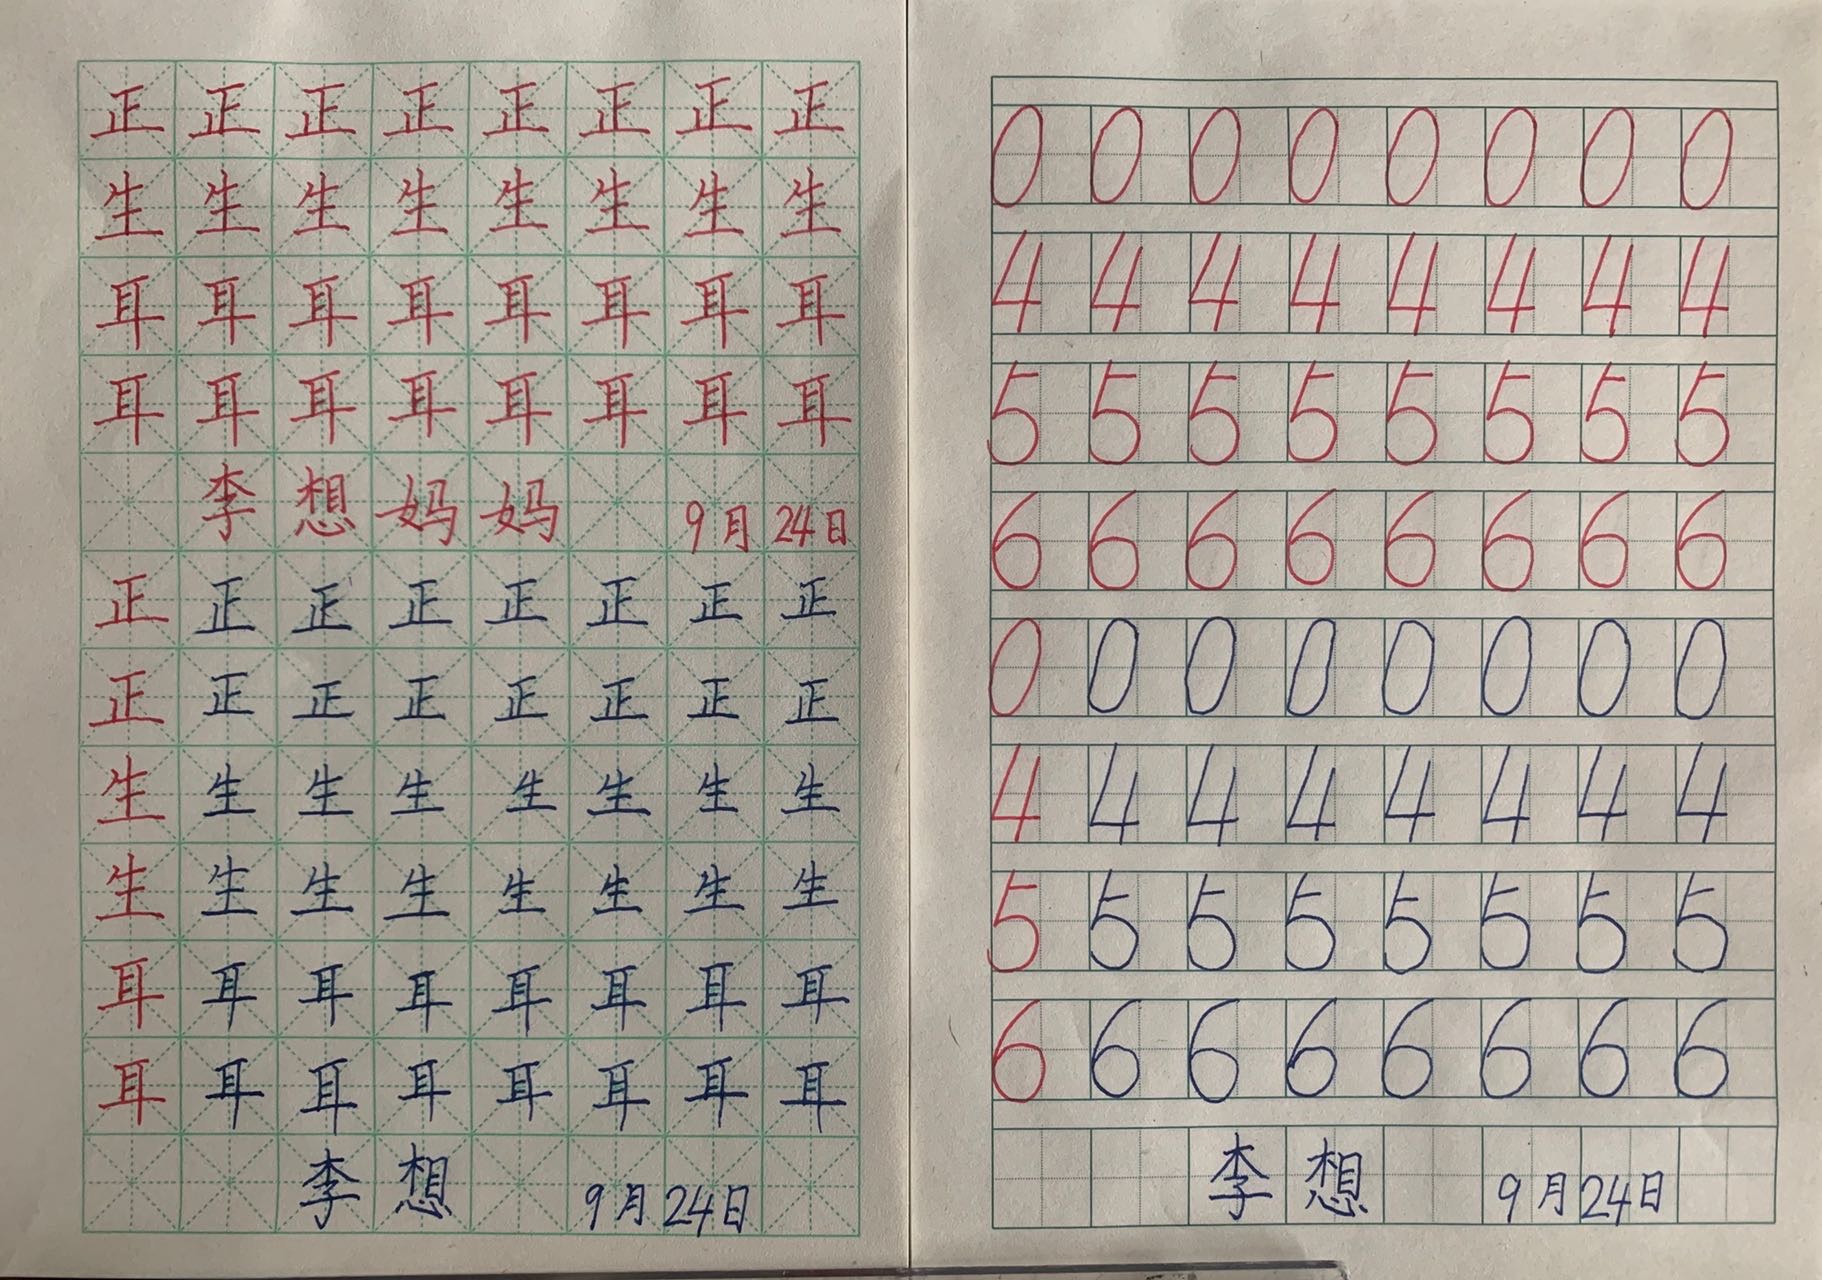 正正正正正正正正
生生生生生生生生
耳耳耳耳耳耳耳耳
耳耳耳耳耳耳耳耳
李想妈妈 9月24日
正正正正正正正正
正正正正正正正正
生生生生生生生生
生生生生生生生生
耳耳耳耳耳耳耳耳
耳耳耳耳耳耳耳耳
李想 9月24日
0 0 0 0 0 0 0 0
4 4 4 4 4 4 4 4
5 5 5 5 5 5 5 5
6 6 6 6 6 6 6 6
0 0 0 0 0 0 0 0
4 4 4 4 4 4 4 4
5 5 5 5 5 5 5 5
6 6 6 6 6 6 6 6
李想 9月24日